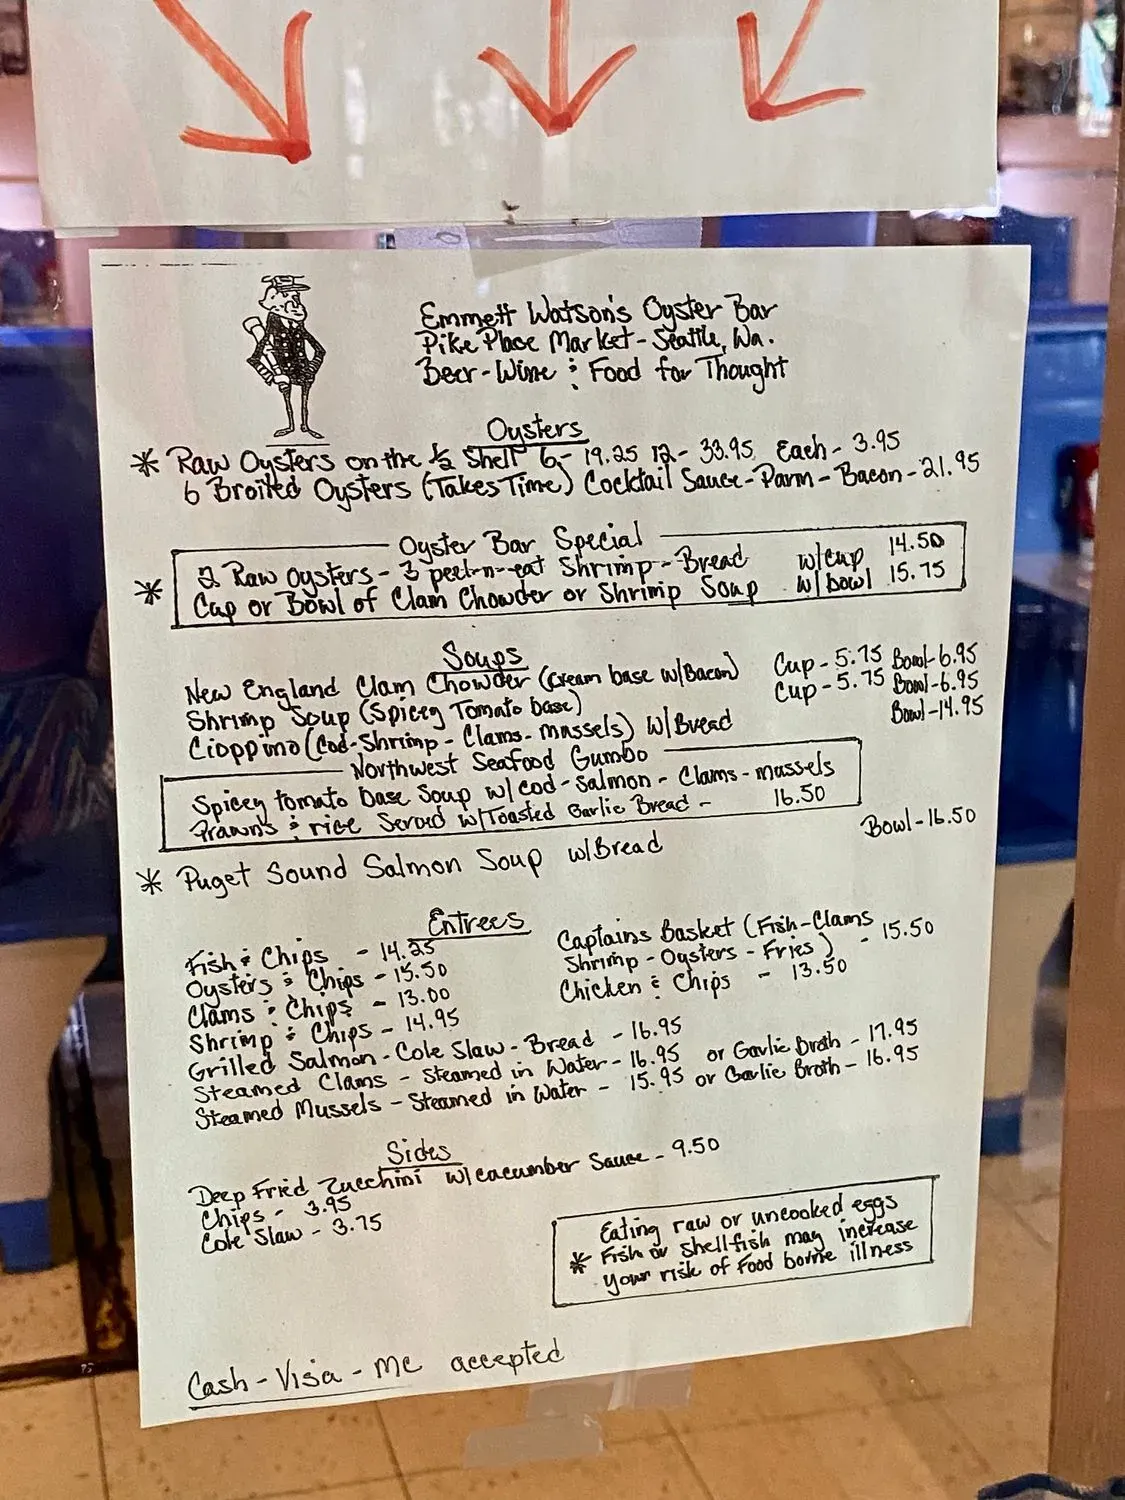 Emmett Watson's Oyster Bar
Pike Place Market - Seattle, Wa.
Beer - Wine & Food for Thought
Oysters
* Raw Oysters on the ½ Shell 6 - 19.25 12 - 33.95 Each - 3.95
6 Broiled Oysters (Takes Time) Cocktail Sauce - Parm - Bacon - 21.95
Oyster Bar Special
* 2 Raw Oysters - 3 peel-n-eat Shrimp - Bread w/cup 14.50
Cup or Bowl of Clam Chowder or Shrimp Soup w/bowl 15.75
Soups
New England Clam Chowder (cream base w/Bacon) Cup - 5.75 Bowl - 6.95
Shrimp Soup (Spicey Tomato base) Cup - 5.75 Bowl - 6.95
Cioppino (Cod - Shrimp - Clams - mussels) w/Bread Bowl - 14.95
Northwest Seafood Gumbo
Spicey tomato base Soup w/cod - Salmon - Clams - mussels
Prawns & rice Served w/Toasted Garlic Bread - 16.50
* Puget Sound Salmon Soup w/Bread Bowl - 16.50
Entrees
Fish & Chips - 14.25
Oysters & Chips - 15.50
Clams & Chips - 13.00
Shrimp & Chips - 14.95
Captains Basket (Fish - Clams
Shrimp - Oysters - Fries) - 15.50
Chicken & Chips - 13.50
Grilled Salmon - Cole Slaw - Bread - 16.95
Steamed Clams - Steamed in Water - 16.95 or Garlic Broth - 17.95
Steamed Mussels - Steamed in Water - 15.95 or Garlic Broth - 16.95
Sides
Deep Fried Zucchini w/cucumber Sauce - 9.50
Chips - 3.95
Cole Slaw - 3.75
Eating raw or uncooked eggs
* Fish or shellfish may increase
your risk of Food borne illness
Cash - Visa - MC accepted